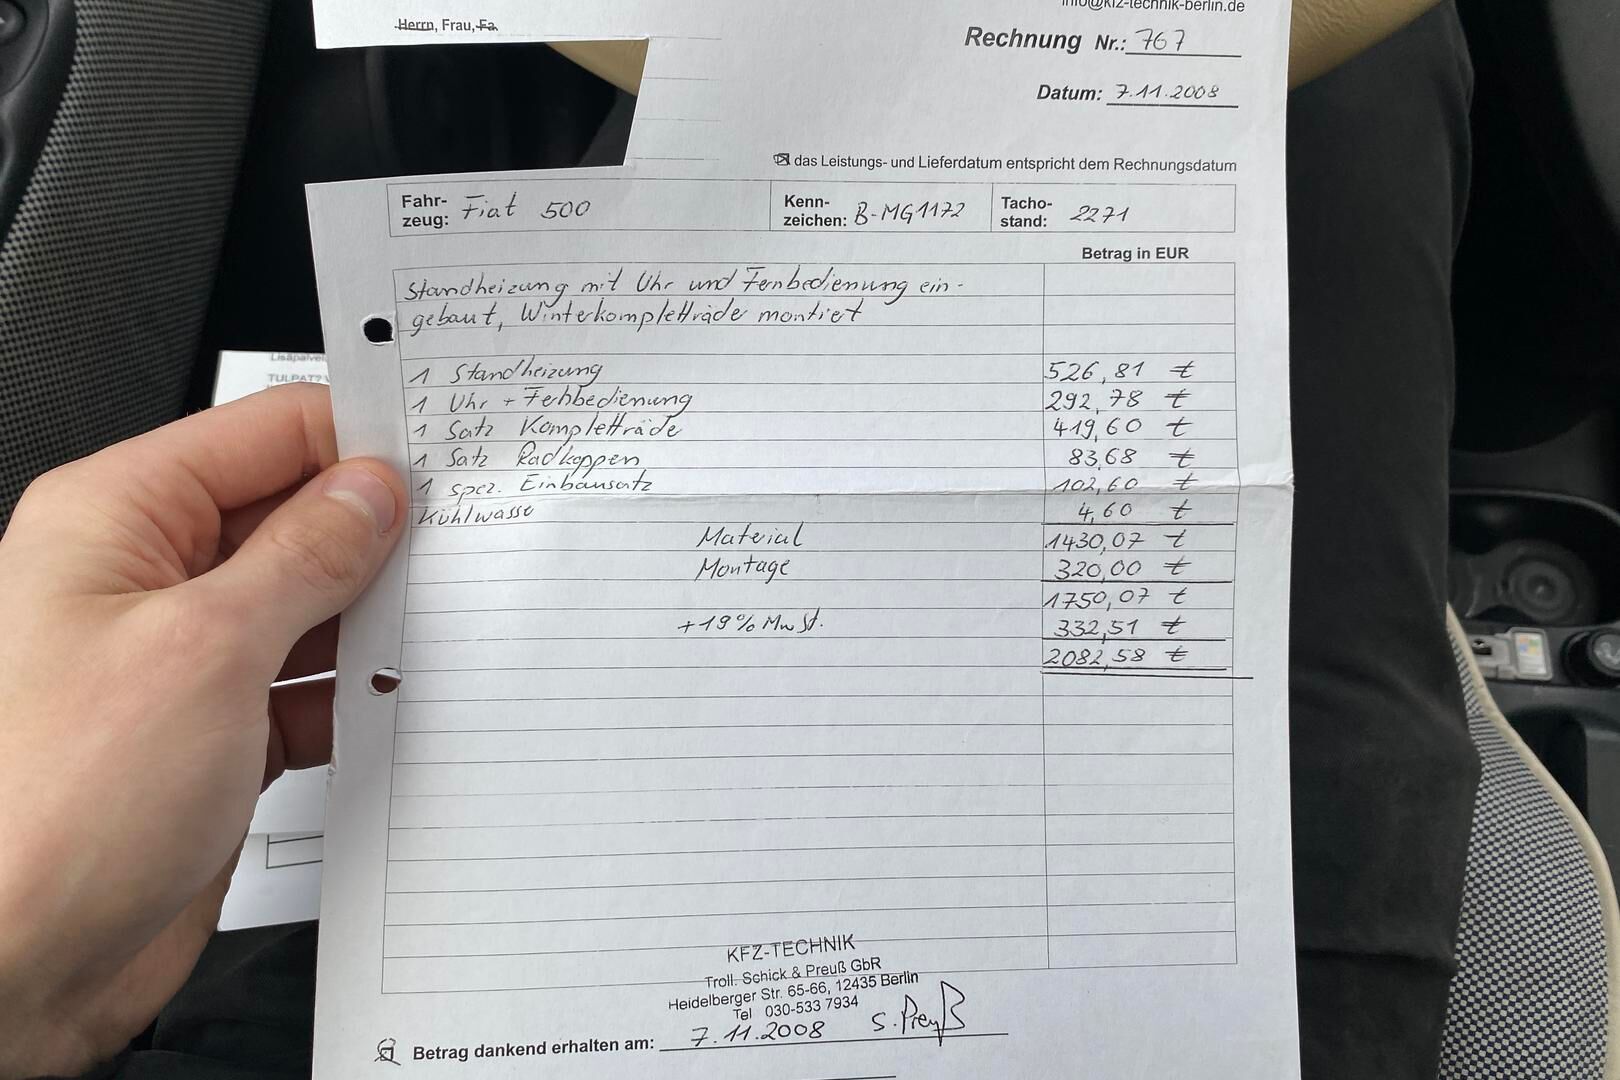 info@kfz-technik-berlin.de
Herrn, Frau, Fa.
Rechnung Nr.: 767
Datum: 7.11.2008
das Leistungs- und Lieferdatum entspricht dem Rechnungsdatum
Fahr-zeug: Fiat 500 Kenn-zeichen: B-MG1172 Tacho-stand: 2271
Betrag in EUR
Standheizung mit Uhr und Fernbedienung ein-
gebaut, Winterkompletträder montiert
1 Standheizung 526,81 €
1 Uhr + Fehbedienung 292,78 €
1 Satz Kompletträde 419,60 €
1 Satz Radkappen 83,68 €
1 spez. Einbausatz 102,60 €
Kühlwasse 4,60 €
Material 1430,07 €
Montage 320,00 €
1750,07 €
+19% MwSt. 332,51 €
2082,58 €
KFZ-TECHNIK
Troll. Schick & Preuß GbR
Heidelberger Str. 65-66, 12435 Berlin
Tel 030-533 7934
Betrag dankend erhalten am: 7.11.2008 S. Preuß
TULPAT?